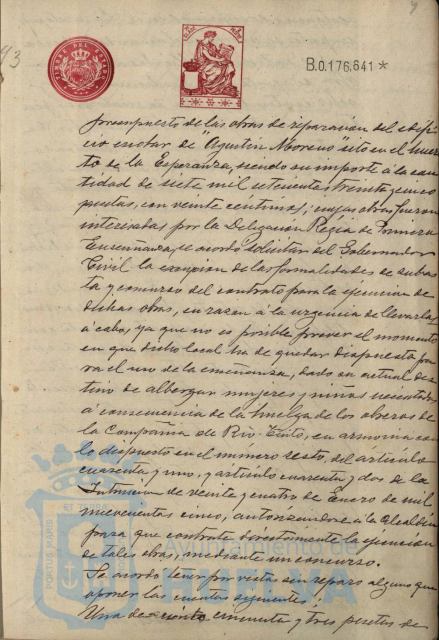 93
9
TIMBRE DEL ESTADO
B.0.176,641 *
presupuesto de las obras de reparación del edifi-
cio escolar de "Agustín Moreno" sito en el Huer-
to de la Esperanza, siendo su importe á la can-
tidad de siete mil setecientas treinta y cinco
pesetas, con veinte centimos; cuyas obras fueron
interesadas por la Delegacion Regia de Primera
Enseñanza, se acordó solicitar del Gobernador
Civil la exencion de las formalidades de subas-
ta y concurso del contrato para la ejecucion de
dichas obras, en razon á la urgencia de llevarlas
á cabo, ya que no es posible prever el momento
en que dicho local ha de quedar dispuesto pa-
ra el uso de la enseñanza, dado su actual des-
tino de albergar mujeres y niñas necesitadas
á consecuencia de la huelga de los obreros de
la Compañia de Rio-Tinto, en armonia con
lo dispuesto en el numero sesto, del artículo
cuarenta y uno, y artículo cuarenta y dos de la
Intruccion de veinte y cuatro de Enero de mil
novecientos cinco, autorizandose á la Alcaldia
para que contrate directamente la ejecucion
de tales obras, mediante un concurso.
Se acordó tener por vistas sin reparo alguno que
oponer las cuentas siguientes:
Una de ciento cincuenta y tres pesetas de
PORTUS MARIS ET
Ayuntamiento de
HUELVA